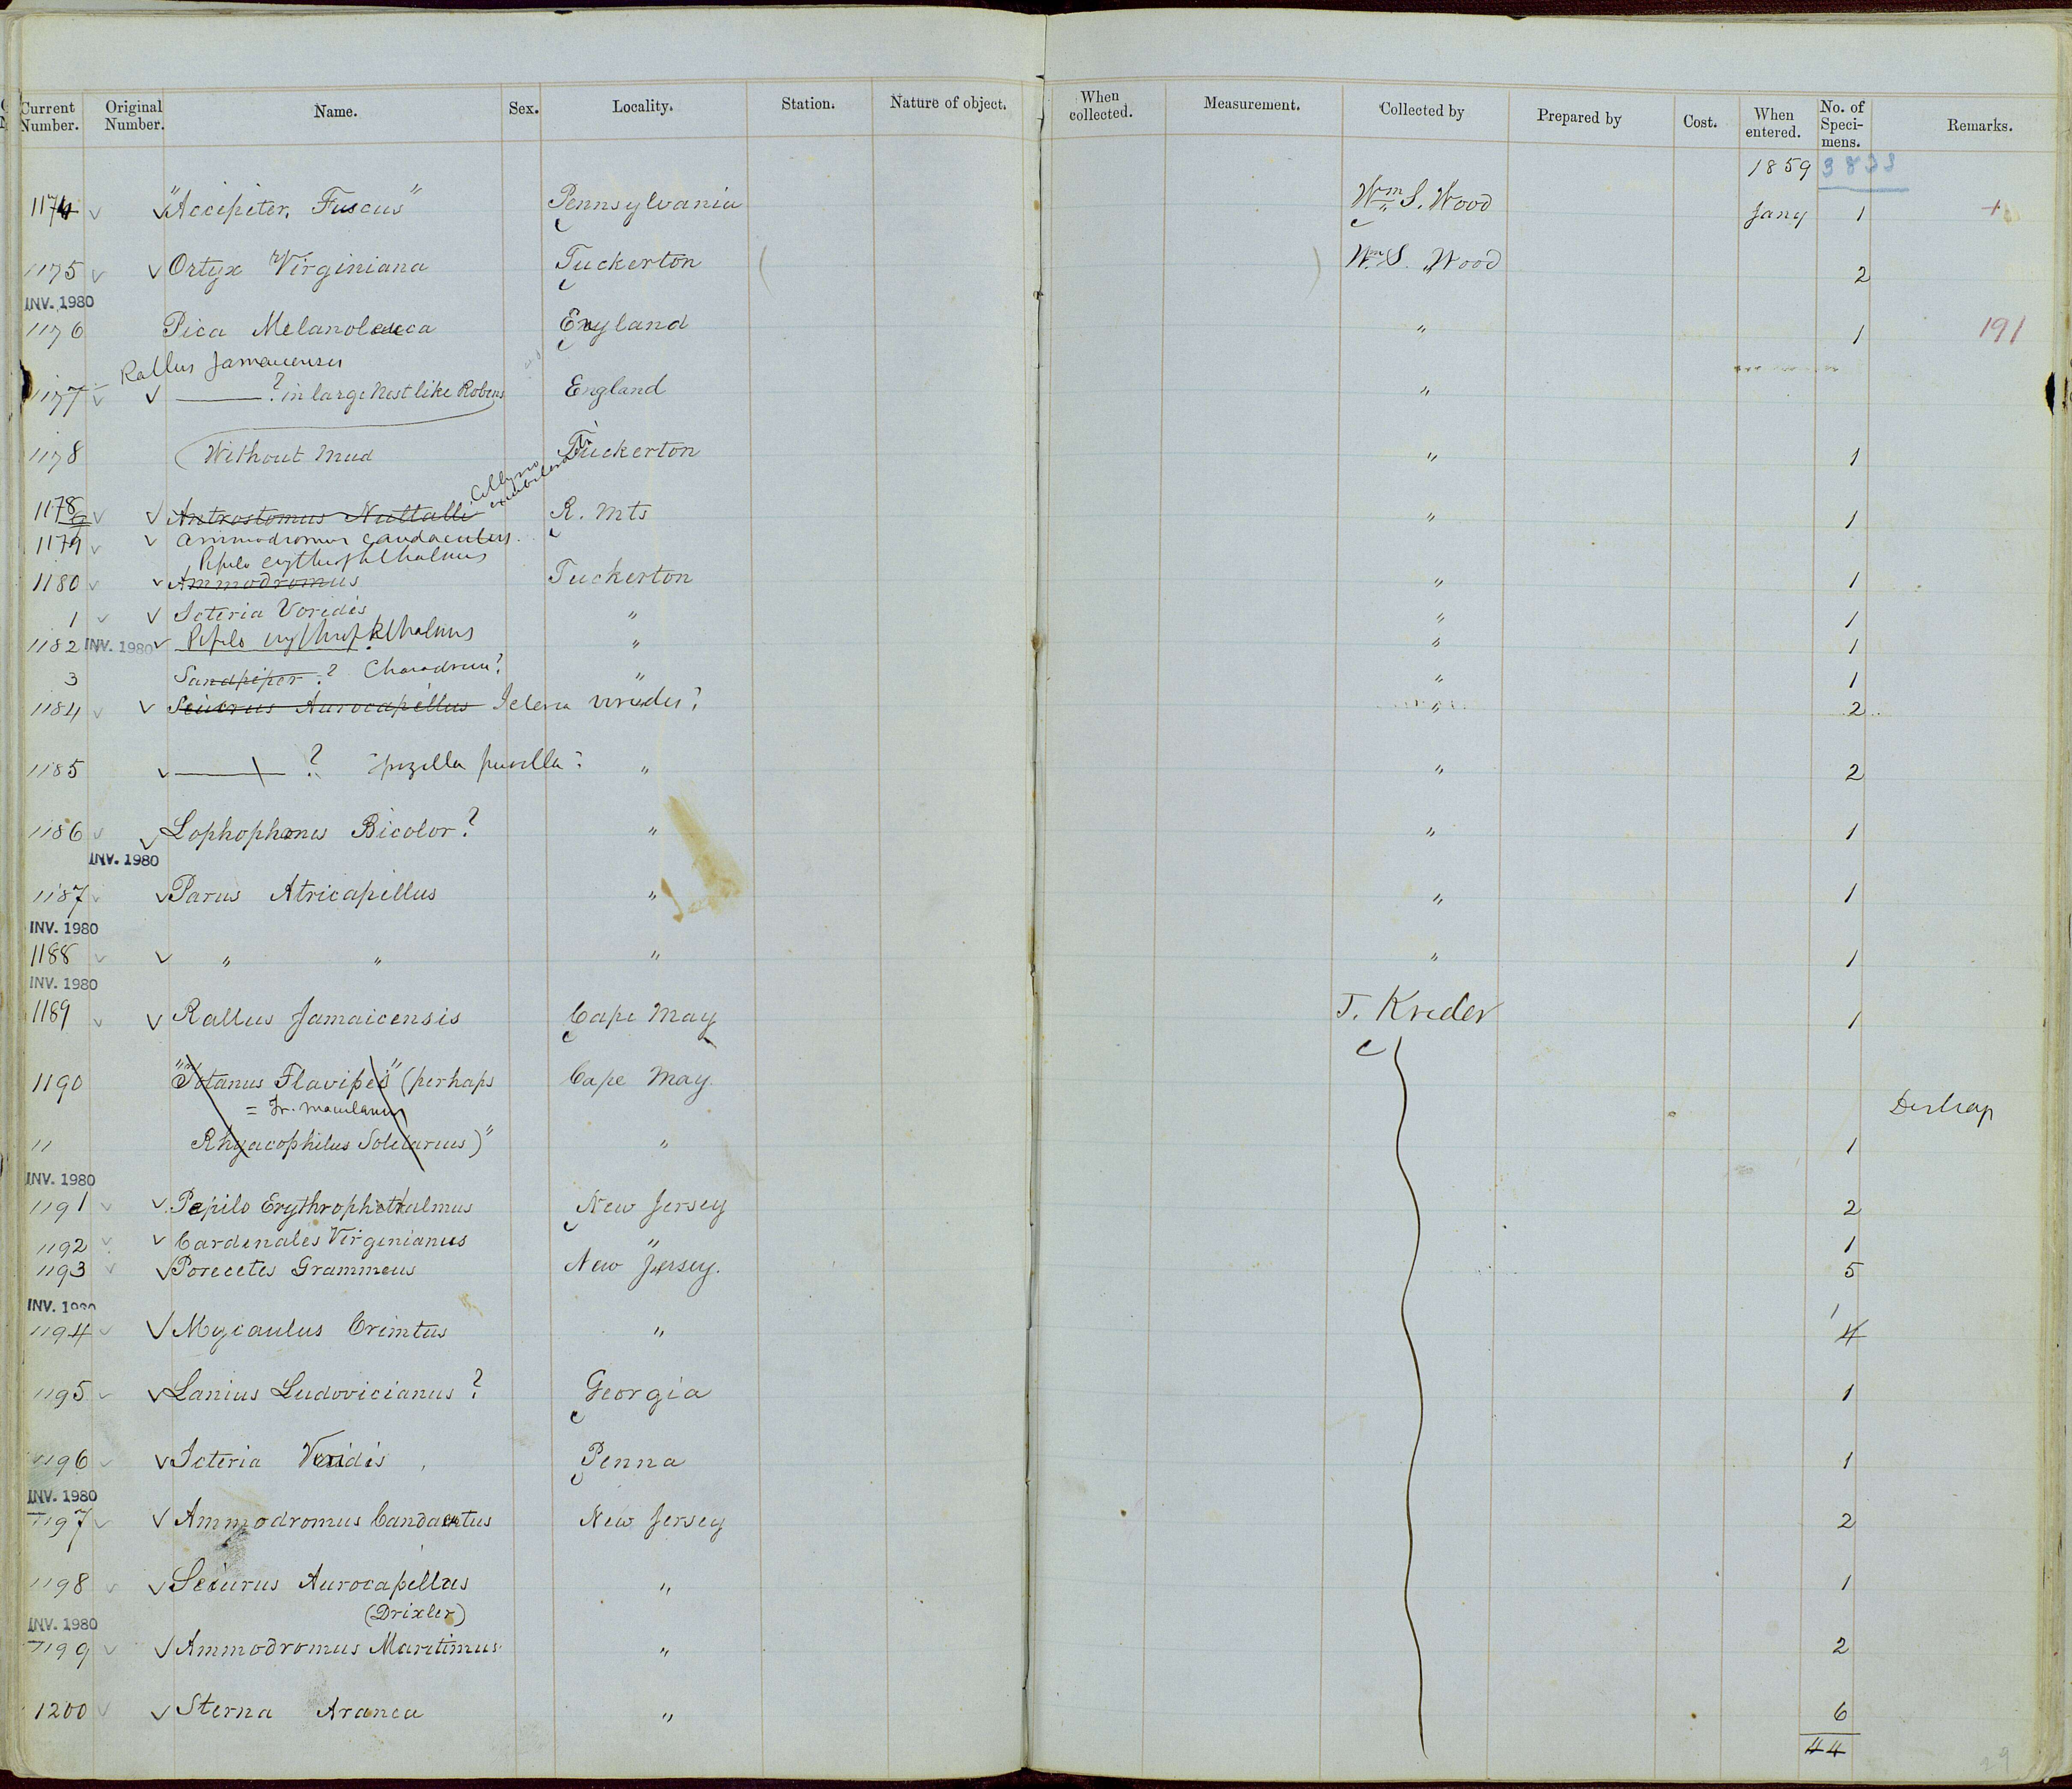 Current Number. Original Number. Name. Sex. Locality. Station. Nature of object. When collected. Measurement. Collected by Prepared by Cost. When entered. No. of Speci-mens. Remarks.
1859 3833
1174 "Accipiter, Fuscus" Pennsylvania Wm S. Wood Jany 1
1175 Ortyx Virginiana Tuckerton ( ) Wm S. Wood 2
INV. 1980
1176 Pica Melanoleuca England " 1 191
Rallus Jamaicensis
1177 ? in large Nest like Robins England "
1178 Without Mud Tuckerton " 1
1178 Antrostomus Nuttalli R. Mts " 1
1179 Ammodromus caudacutus
Pipilo erythrophthalmus
1180 Ammodromus Tuckerton " 1
1 Icteria Viridis " " 1
1182 INV. 1980 Pipilo erythrophthalmus " " 1
3 Sandpiper ? Charadrius? " " 1
1184 Seiurus Aurocapillus Icteria viridis? " 2
1185 ? Spizella pusilla? " " 2
1186 Lophophanes Bicolor? " " 1
INV. 1980
1187 Parus Atricapillus " " 1
INV. 1980
1188 " " " " 1
INV. 1980
1189 Rallus Jamaicensis Cape May J. Krider 1
1190 "Totanus Flavipes" (perhaps Cape May.
= Tr. macularius
" Rhyacophilus Solitarius)" " 1
INV. 1980
1191 Pepilo Erythrophthalmus New Jersey 2
1192 Cardenales Virginianus " 1
1193 Porecetes Grammeus New Jersey. 5
INV. 1980
1
1194 Mycaulus Crinitus " 4
1195 Lanius Ludovicianus ? Georgia 1
1196 Icteria Veridis Penna 1
INV. 1980
1197 Ammodromus Caudacutus New Jersey 2
1198 Seiurus Aurocapillus " 1
(Drixler)
INV. 1980
1199 Ammodromus Maritimus " 2
1200 Sterna Aranea " 6
44
29